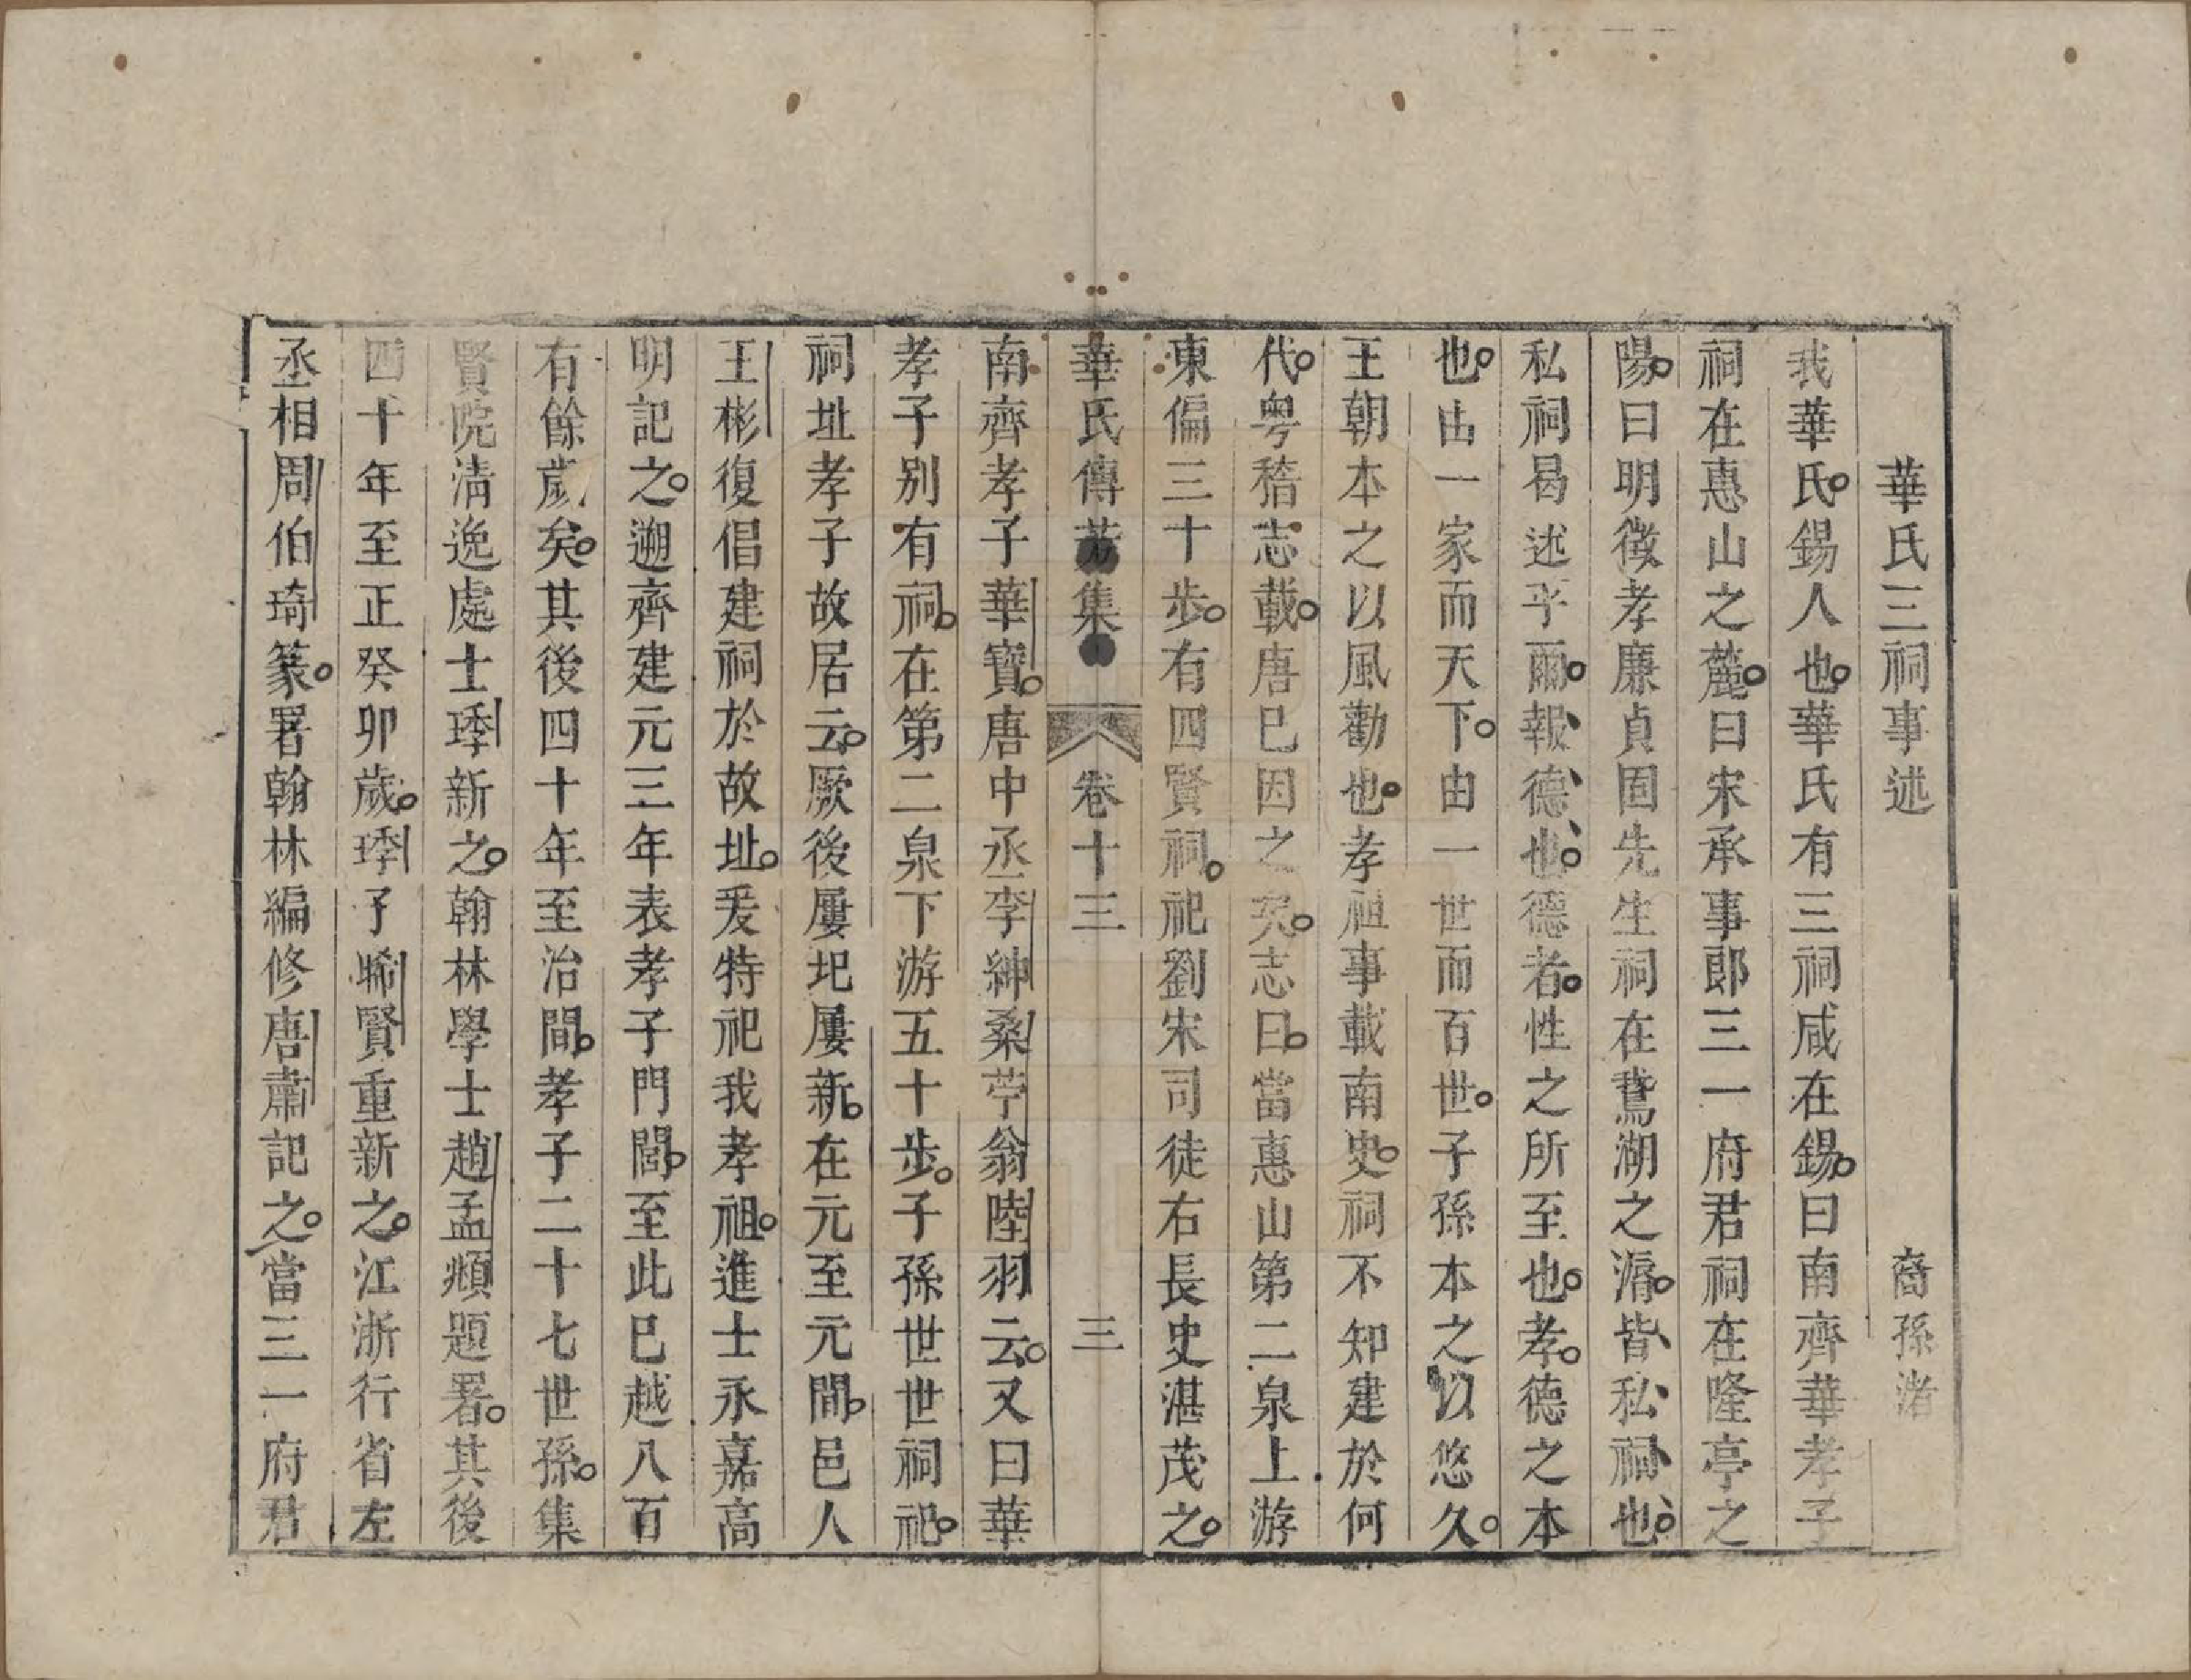 華氏三祠事述　裔孫渚
我華氏錫人也華氏有三祠咸在錫曰南齊華孝子
祠在惠山之麓曰宋承事郎三一府君祠在隆亭之
陽曰明徵孝廉貞固先生祠在鵞湖之湑皆私祠也
私祠曷述乎爾報德也德者性之所至也孝德之本
也由一家而天下由一世而百世子孫本之以悠久
王朝本之以風勸也孝祖事載南史祠不知建於何
代粤稽志載唐已因之矣志曰當惠山第二泉上游
東偏三十步有四賢祠祀劉宋司徒右長史湛茂之
華氏傳芳集　卷十三　三
南齊孝子華寶唐中丞李紳桑苧翁陸羽云又曰華
孝子別有祠在第二泉下游五十步子孫世世祠祀
祠址孝子故居云厥後屢圯屢新在元至元間邑人
王彬復倡建祠於故址爰特祀我孝祖進士永嘉高
明記之遡齊建元三年表孝子門閭至此已越八百
有餘歲矣其後四十年至治間孝子二十七世孫集
賢院清逸處士瑧新之翰林學士趙孟頫題署其後
四十年至正癸卯歲瑧子晞賢重新之江浙行省左
丞相周伯琦篆署翰林編修唐肅記之當三一府君